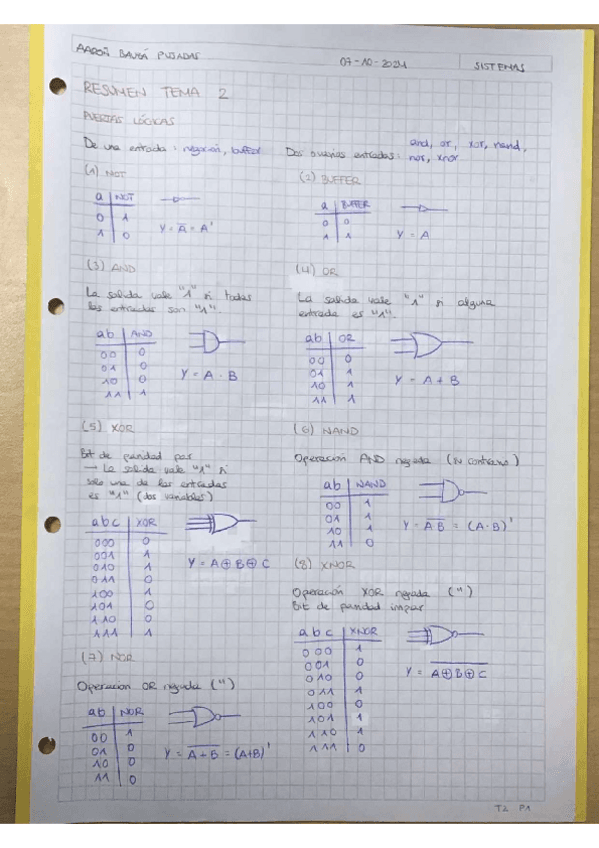 AARON BAUZÁ PUJADAS
07-10-2021
SISTEMAS
RESUMEN TEMA 2
PUERTAS LÓGICAS
De una entrada: negación, buffer
Dos o varias entradas: and, or, xor, nand,
nor, xnor
(1) NOT
a NOT
0 1
1 0
Y = A̅ = A'
(2) BUFFER
a BUFFER
0 0
1 1
Y = A
(3) AND
La salida vale "1" si todas
las entradas son "1".
ab AND
00 0
01 0
10 0
11 1
Y = A · B
(4) OR
La salida vale "1" si alguna
entrada es "1".
ab OR
00 0
01 1
10 1
11 1
Y = A + B
(5) XOR
Bit de paridad par
→ La salida vale "1" si
solo una de las entradas
es "1" (dos variables)
abc XOR
000 0
001 1
010 1
011 0
100 1
101 0
110 0
111 1
Y = A⊕B⊕C
(6) NAND
Operación AND negada (lo contrario)
ab NAND
00 1
01 1
10 1
11 0
Y = A̅B̅ = (A·B)'
(7) NOR
Operación OR negada (")
ab NOR
00 1
01 0
10 0
11 0
Y = A̅+̅B̅ = (A+B)'
(8) XNOR
Operación XOR negada (")
Bit de paridad impar
abc XNOR
000 1
001 0
010 0
011 1
100 0
101 1
110 1
111 0
Y = A̅⊕̅B̅⊕̅C̅
T2 P1